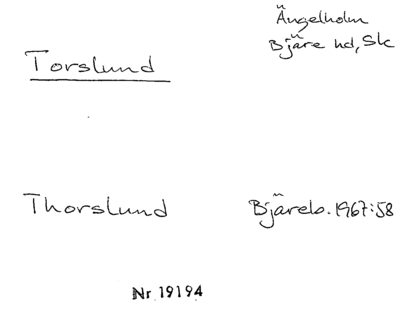 Ängelholm
Bjäre hd, Sk
Torslund
Thorslund
Bjäreb. 1967:58
Nr 19194